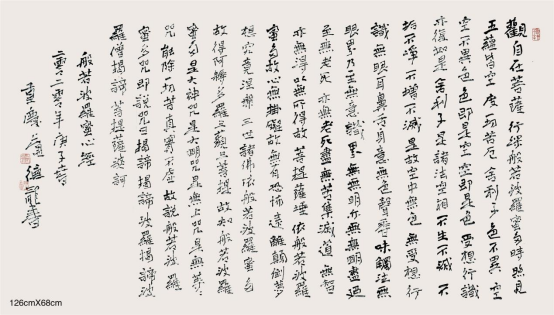 觀自在菩薩行深般若波羅蜜多時照見
五蘊皆空度一切苦厄舍利子色不異空
空不異色色即是空空即是色受想行識
亦復如是舍利子是諸法空相不生不滅不
垢不淨不增不減是故空中無色無受想行
識無眼耳鼻舌身意無色聲香味觸法無
眼界乃至無意識界無無明亦無無明盡迺
至無老死亦無老死盡無苦集滅道無智
亦無得以無所得故菩提薩埵依般若波羅
蜜多故心無掛礙故無有恐怖遠離顛倒夢
想究竟涅槃三世諸佛依般若波羅蜜多
故得阿耨多羅三藐三菩提故知般若波羅
蜜多是大神咒是大明咒是無上咒是無等等
咒能除一切苦真實不虛故說般若波羅
蜜多咒即說咒曰揭諦揭諦波羅揭諦波
羅僧揭諦菩提薩婆訶
般若波羅蜜心經
二零二零年庚子春
重慶
126cmX68cm